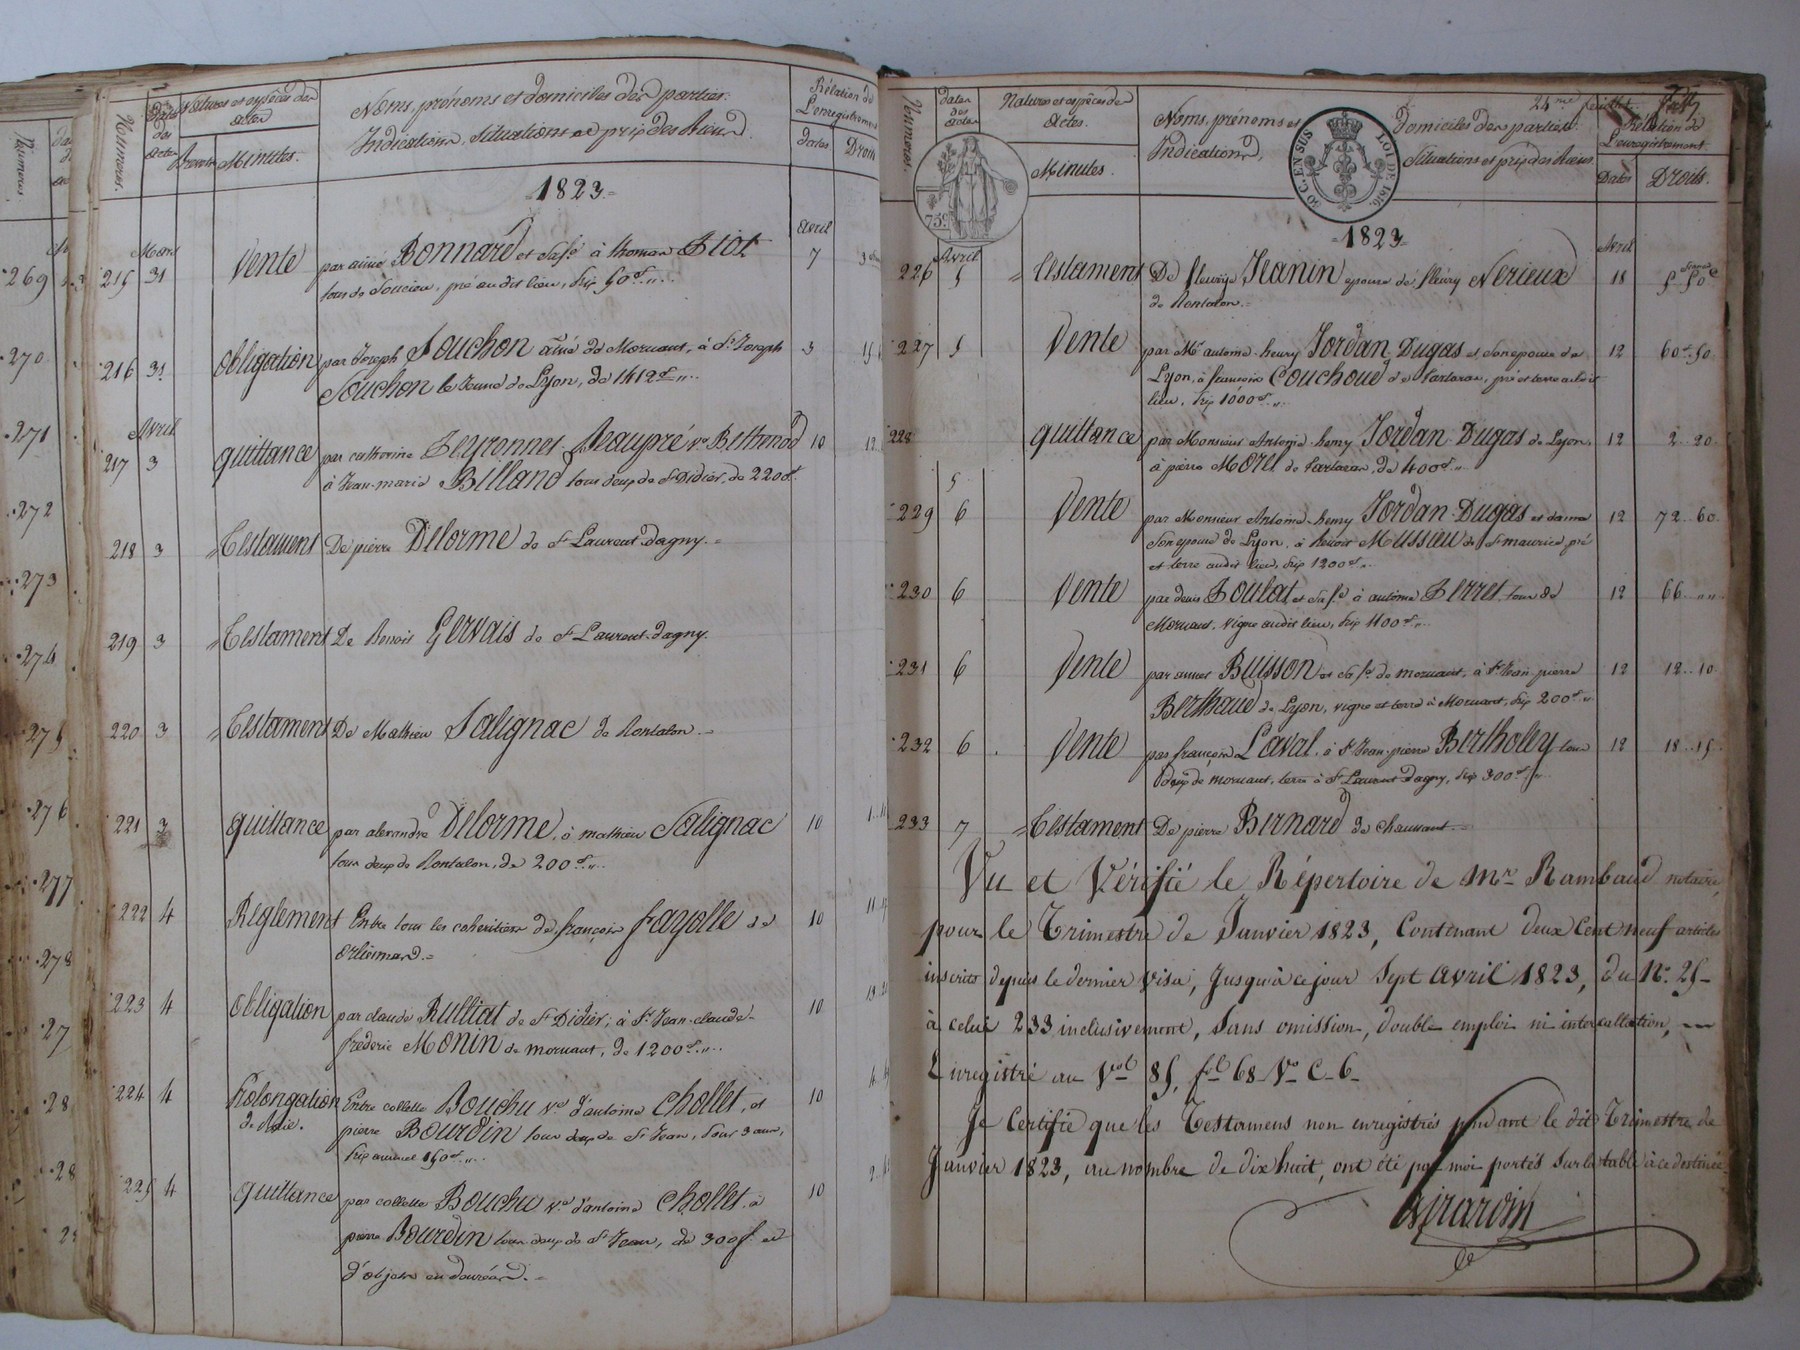 Numéros.
269
270
271
272
273
274
275
276
277
278
27
28
28
Numéros.
Dates des actes
Natures et espèces des actes
Brevets
Minutes.
Noms, prénoms et domiciles des parties.
Indications, Situations et prix des biens.
Rélation de L'enregistrement
Dates
Droits
1823
Mars
Avril
215 31 Vente par aimé Bonnard et sa fe à thomas Piot 7
tous de Soucieu, pré audit lieu, prix 50f.
216 31 Obligation par Joseph Souchon aîné de Mornant, à Sr. Joseph 3
Souchon le Jeune de Lyon, de 1412f
Avril
217 3 quittance par catherine Peyronnet Beaupré ve Bethenod 10
à Jean-marie Billand tous deux de St Didier, de 220f.
218 3 Testament De pierre Delorme de St Laurent-dagny.
219 3 Testament De Benoit Gervais de St Laurent-dagny.
220 3 Testament De Mathieu Salignac de Rontalon.
221 3 quittance par alexandre Delorme, à mathieu Salignac 10
tous deux de Rontalon, de 200f.
222 4 Règlement Entre tous les cohéritiers de françois fayolle de 10
orliénard.
223 4 Obligation par claude Rulliat de St Didier, à Sr. Jean-claude- 10
fréderic Monin de mornant, de 1200f.
224 4 Prolongation Entre collette Bouchu ve d'antoine Chollet, et 10
pierre Bourdin tous deux de St Jean, pour 3 ans,
prix annuel 150f.
225 4 quittance par collette Bouchu ve d'antoine Chollet à 10
pierre Bourdin tous deux de St Jean, de 300f. et
d'objets en
Numéros.
Dates des actes
Natures et espèces des Actes.
Minutes.
Noms, prénoms et Domiciles des parties.
Indications, Situations et prix des biens.
24me feuillet
Rélation de L'enregistrement
Dates
Droits.
75c.
50 C. EN SUS
LOI DE 1816.
1823
Avril
Avril
226 5 Testament De fleurye Jeanin épouse de fleury Nerieux 18 5 50c
de Rontalon.
227 5 Vente par Mr antoine-henry Jordan-Dugas et son epouse de 12 60f.50
Lyon, à françois Couchoud de tartaras, pré et terre audit
lieu, prix 1000f.
228 quittance par Monsieur Antoine-henry Jordan-Dugas de Lyon, 12 2..20
à pierre Morel de tartaras, de 400f.
5
229 6 Vente par Monsieur Antoine-henry Jordan-Dugas et dame 12 72..60
son epouse de Lyon, à benoit Mussieu de St maurice, pré
et terre audit lieu, prix 1200f.
230 6 Vente par denis Poulat et sa fe à antoine Perret, tous de 12 66
Mornant, vigne audit lieu, prix 1100f.
231 6 Vente par Buisson et sa fe de mornant, à Sr Jean-pierre 12 12..10
Berthaud de Lyon, vigne et terre à Mornant, prix 200f.
232 6 Vente par françois Laval, à Sr Jean-pierre Bertholey tous 12 18..15
deux de mornant, terre à St Laurent-dagny, prix 300f.
233 7 Testament De pierre Bernard de Chaussant.
Vu et Vérifié le Répertoire de Mr Rambaud notaire,
pour le Trimestre de Janvier 1823, Contenant deux Cent neuf articles
inscrits depuis le dernier visa, Jusqu'à ce jour Sept avril 1823, du No. 25
à celui 233 inclusivement, Sans omission, double emploi ni intercallation,
Enregistré au Vol 85, fol 68 Vo C. 6
Je Certifie que les Testamens non enregistrés pendant le dit Trimestre de
Janvier 1823, au nombre de dix huit, ont été par moi portés sur la table à ce destinée
Girardin